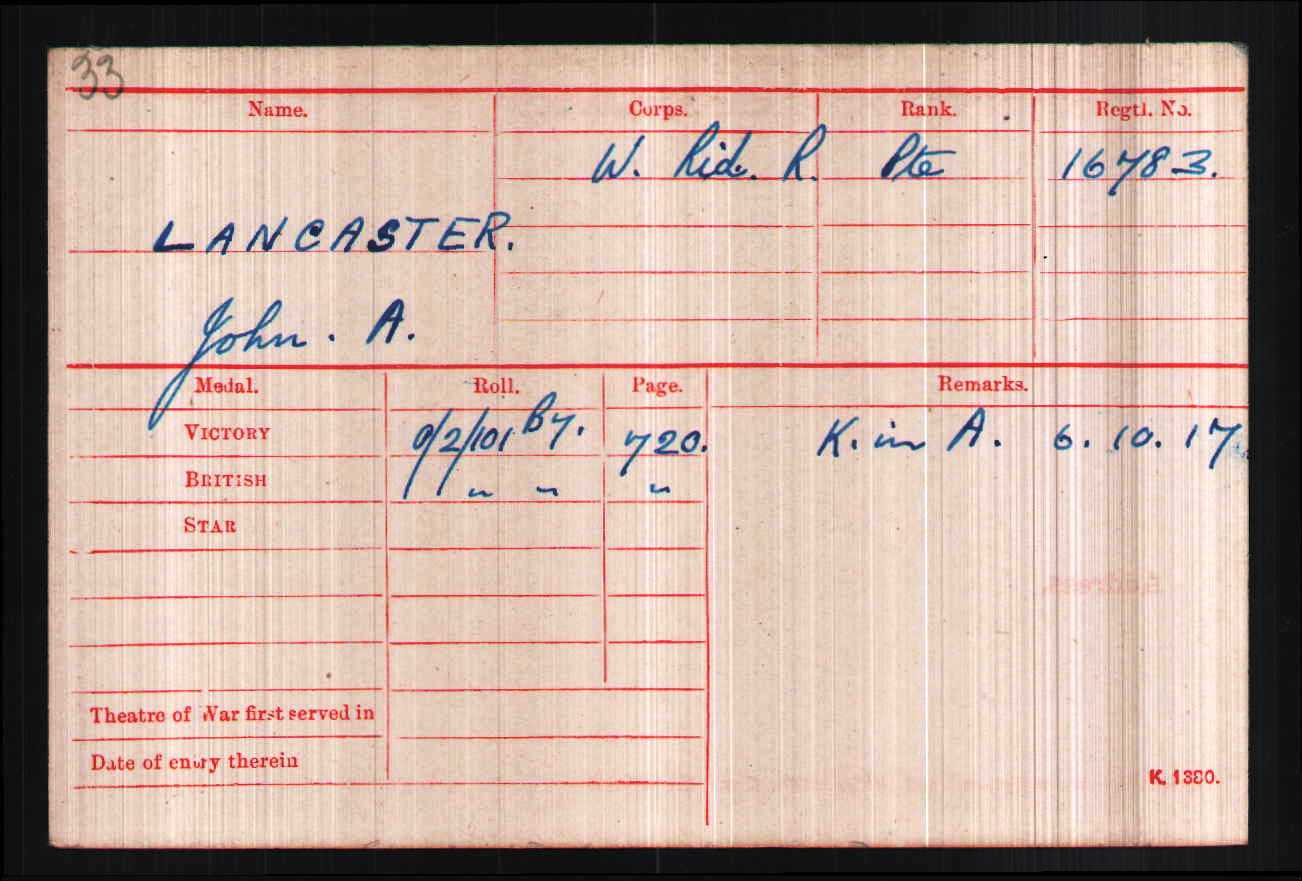 33
Name. Corps. Rank. Regtl. No.
W. Rid. R. Pte 16783.
LANCASTER.
John. A.
Medal. Roll. Page. Remarks.
VICTORY 0/2/101 B7. 720. K. in A. 6.10.17
BRITISH " " "
STAR
Theatre of War first served in
Date of entry therein
K. 1380.